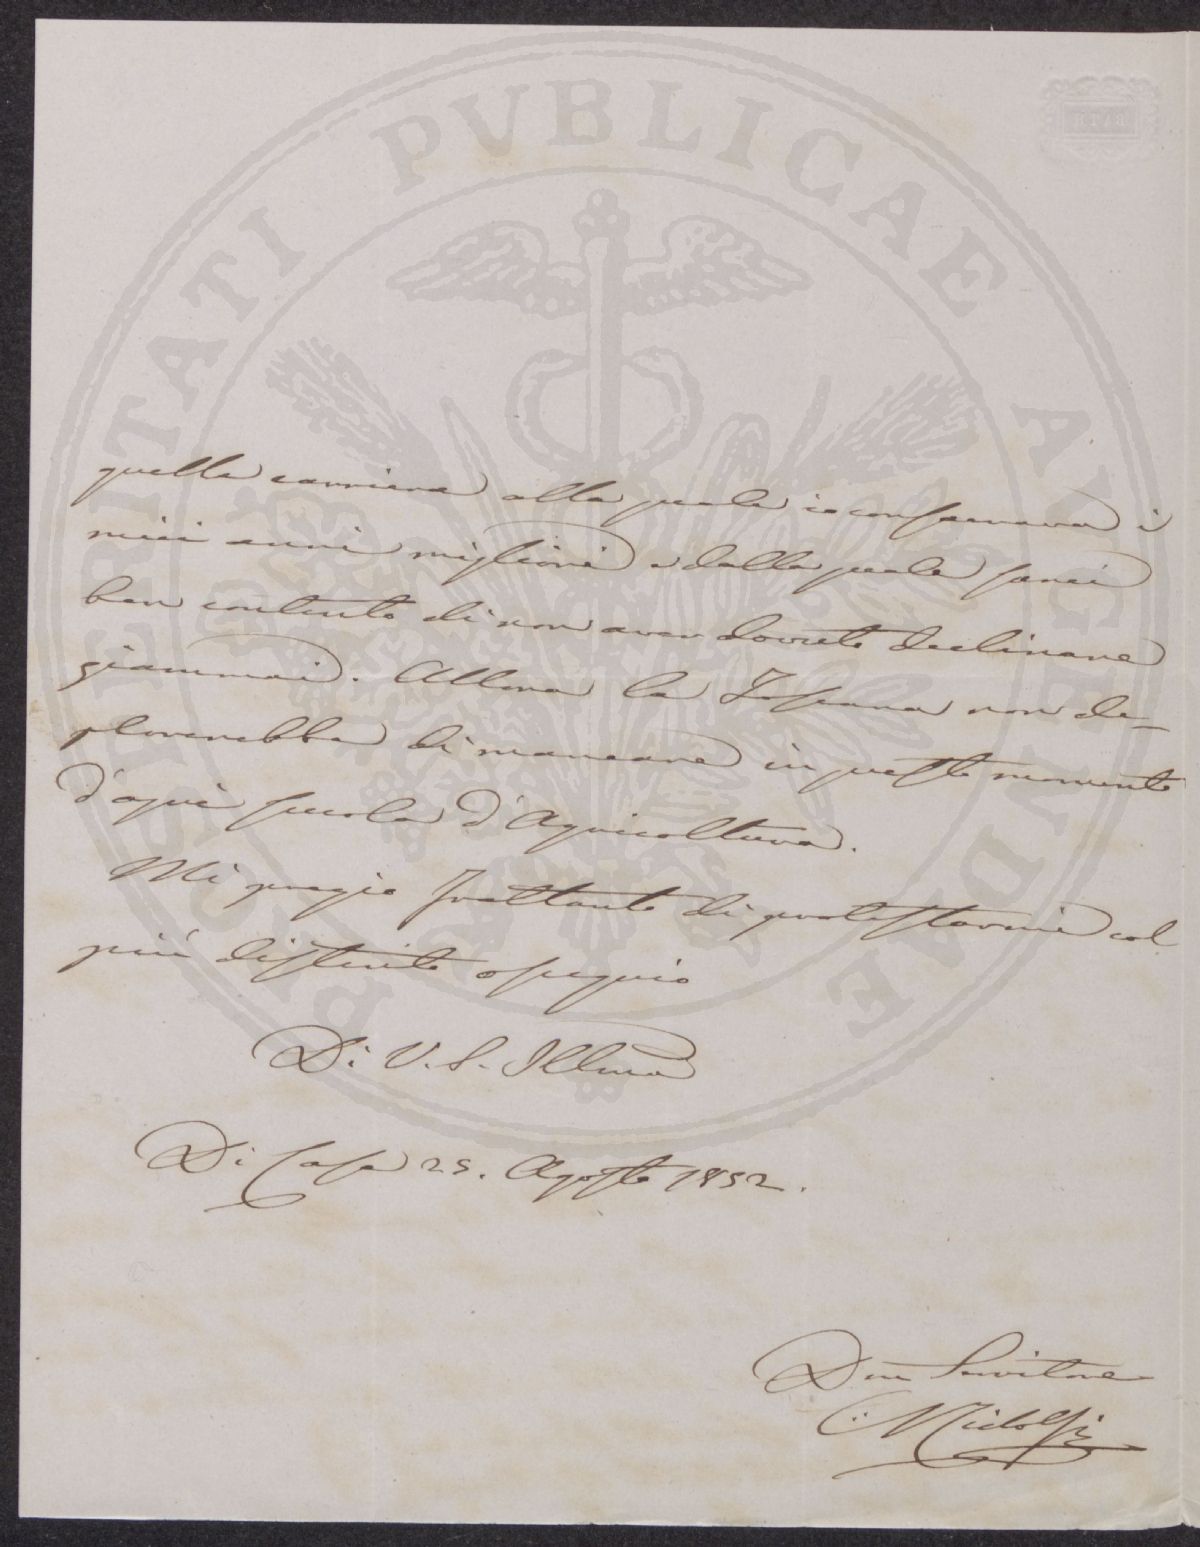 PROSPERITATI PVBLICAE AVGENDAE
BATH
quella carriera alla quale io consacrava i
miei anni migliori e dalla quale sarei
ben contento di non aver dovuto declinare
giammai. Allora la Toscana non de-
plorerebbe di mancare in questo momento
d'ogni scuola d'Agricoltura.
Mi pregio frattanto di protestarmi col
più distinto ossequio
Di V. S. Illma
Di Casa 25. Agosto 1852.
Dev Servitore
C. Ridolfi